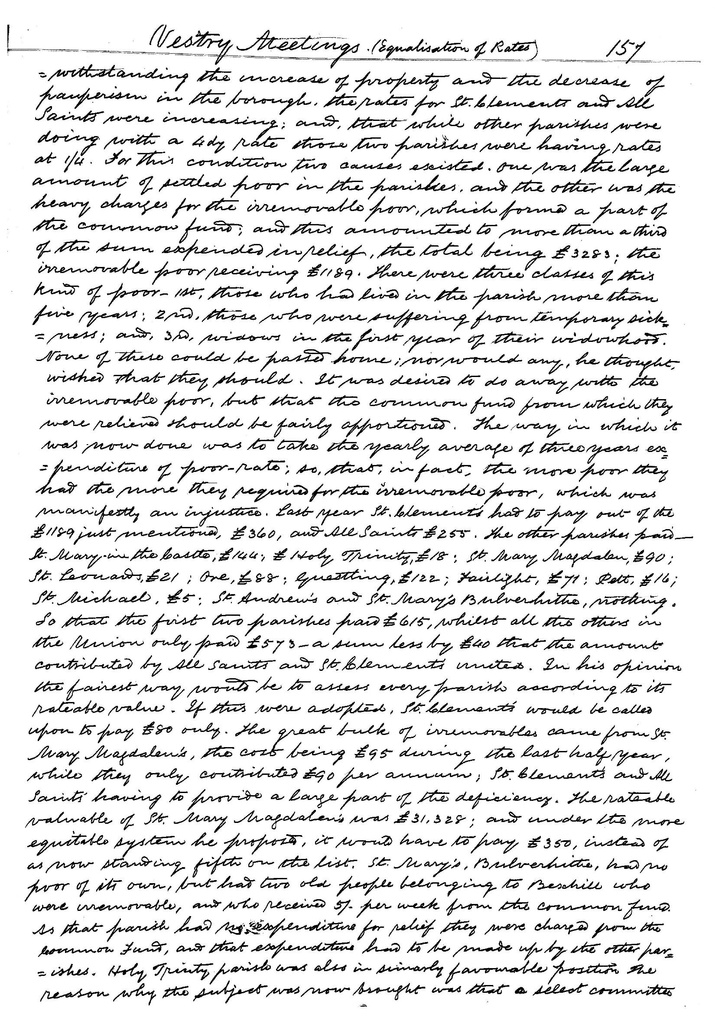 Vestry Meetings. (Equalisation of Rates) 157
=withstanding the increase of property and the decrease of
pauperism in the borough, the rates for St. Clements and All
Saints were increasing; and, that while other parishes were
doing with a 4dy rate those two parishes were having rates
at 1/4. For this condition two causes existed. One was the large
amount of settled poor in the parishes, and the other was the
heavy charges for the irremovable poor, which formed a part of
the common fund; and this amounted to more than a third
of the sum expended in relief, the total being £3283; the
irremovable poor receiving £1189. There were three classes of this
kind of poor - 1st, those who had lived in the parish more than
five years; 2nd, those who were suffering from temporary sick=
=ness; and, 3rd, widows in the first year of their widowhood.
None of these could be passed home; nor would any, he thought,
wished that they should. It was desired to do away with the
irremovable poor, but that the common fund from which they
were relieved should be fairly apportioned. The way in which it
was now done was to take the yearly average of three years ex=
=penditure of poor-rate; so, that, in fact, the more poor they
had the more they required for the irremovable poor, which was
manifestly an injustice. Last year St. Clement's had to pay out of the
£1189 just mentioned, £360, and All Saints £255. The other parishes paid—
St. Mary-in the Castle, £144; £ Holy Trinity, £18; St. Mary Magdalen, £90;
St. Leonards, £21; Ore, £88; Guestling, £122; Fairlight, £71; Pett, £16;
St. Michael, £5; St. Andrew's and St. Mary's Bulverhithe, nothing.
So that the first two parishes paid £615, whilst all the others in
the Union only paid £573 - a sum less by £40 that the amount
contributed by All Saints and St. Clements united. In his opinion
the fairest way would be to assess every parish according to its
rateable value. If this were adopted, St. Clement's would be called
upon to pay £80 only. The great bulk of irremovables came from St.
Mary Magdalen's, the cost being £95 during the last half year,
while they only contributed £90 per annum; St. Clement's and All
Saints' having to provide a large part of the deficiency. The rateable
valuable of St. Mary Magdalen's was £31,328; and under the more
equitable system he proposed, it would have to pay £350, instead of
as now standing fifth on the list. St. Mary's, Bulverhithe, had no
poor of its own, but had two old people belonging to Bexhill who
were irremovable, and who received 5/. per week from the common fund.
As that parish had no expenditure for relief they were charged from the
Common Fund, and that expenditure had to be made up by the other par=
=ishes. Holy Trinty parish was also in simarly favourable position. The
reason why the subject was now brought was that a select committee